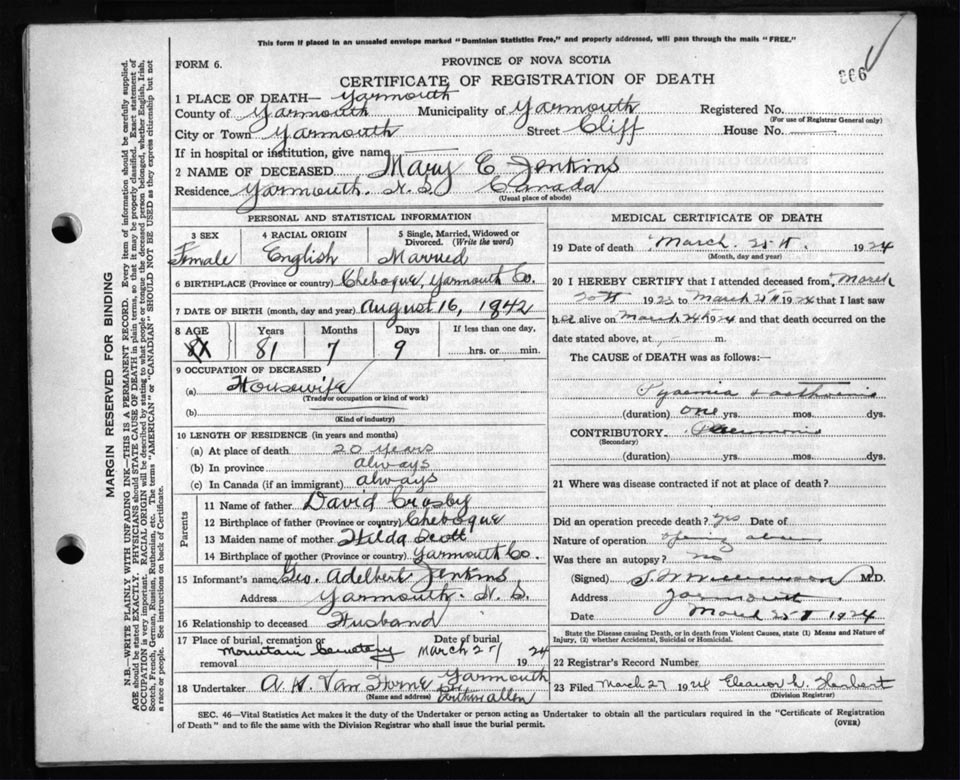 This form if placed in an unsealed envelope marked "Dominion Statistics Free," and properly addressed, will pass through the mails "FREE."
FORM 6.
PROVINCE OF NOVA SCOTIA
CERTIFICATE OF REGISTRATION OF DEATH
366
1 PLACE OF DEATH— Yarmouth
County of Yarmouth Municipality of Yarmouth Registered No.
(For use of Registrar General only)
City or Town Yarmouth Street Cliff House No.
If in hospital or institution, give name
2 NAME OF DECEASED Mary E. Jenkins
Residence Yarmouth. N.S. Canada
(Usual place of abode)
MARGIN RESERVED FOR BINDING
N.B.—WRITE PLAINLY WITH UNFADING INK—THIS IS A PERMANENT RECORD. Every item of information should be carefully supplied.
AGE should be stated EXACTLY. PHYSICIANS should STATE CAUSE OF DEATH in plain terms, so that it may be properly classified. Exact statement of
OCCUPATION is very important. RACIAL ORIGIN will be described by stating to what people or tongue the deceased person belonged, whether English, Irish,
Scotch, French, German, Russian, Ruthenian, etc. The terms "AMERICAN" or "CANADIAN" SHOULD NOT BE USED as they express citizenship but not
a race or people. See instructions on back of Certificate.
PERSONAL AND STATISTICAL INFORMATION
3 SEX
Female
4 RACIAL ORIGIN
English
5 Single, Married, Widowed or
Divorced. (Write the word)
Married
6 BIRTHPLACE (Province or country) Chebogue, Yarmouth Co.
7 DATE OF BIRTH (month, day and year) August 16, 1842
8 AGE Years Months Days If less than one day,
81 7 9 hrs. or min.
9 OCCUPATION OF DECEASED
(a) Housewife
(Trade or occupation or kind of work)
(b)
(Kind of industry)
10 LENGTH OF RESIDENCE (in years and months)
(a) At place of death 20 years
(b) In province always
(c) In Canada (if an immigrant) always
Parents
11 Name of father David Crosby
12 Birthplace of father (Province or country) Chebogue
13 Maiden name of mother Hilda Scott
14 Birthplace of mother (Province or country) Yarmouth Co.
15 Informant's name Geo. Adelbert Jenkins
Address Yarmouth. N.S.
16 Relationship to deceased Husband
17 Place of burial, cremation or removal Mountain Cemetery
Date of burial March 27 1924
18 Undertaker A. H. Van Horne Yarmouth
(Name and address)
MEDICAL CERTIFICATE OF DEATH
19 Date of death March. 25th. 1924
(Month, day and year)
20 I HEREBY CERTIFY that I attended deceased from March
20th 1923 to March 25th 1924 that I last saw
her alive on March 24th 1924 and that death occurred on the
date stated above, at m.
The CAUSE of DEATH was as follows:
Pyaemia
(duration) one yrs. mos. dys.
CONTRIBUTORY Pneumonia
(Secondary)
(duration) yrs. mos. dys.
21 Where was disease contracted if not at place of death?
Did an operation precede death? yes Date of
Nature of operation opening
Was there an autopsy? no
(Signed) M.D.
Address Yarmouth
Date March 25th 1924
State the Disease causing Death, or in death from Violent Causes, state (1) Means and Nature of
Injury, (2) whether Accidental, Suicidal or Homicidal.
22 Registrar's Record Number
23 Filed March 27 1924 Eleanor
(Division Registrar)
SEC. 46—Vital Statistics Act makes it the duty of the Undertaker or person acting as Undertaker to obtain all the particulars required in the "Certificate of Registration
of Death" and to file the same with the Division Registrar who shall issue the burial permit.
(OVER)